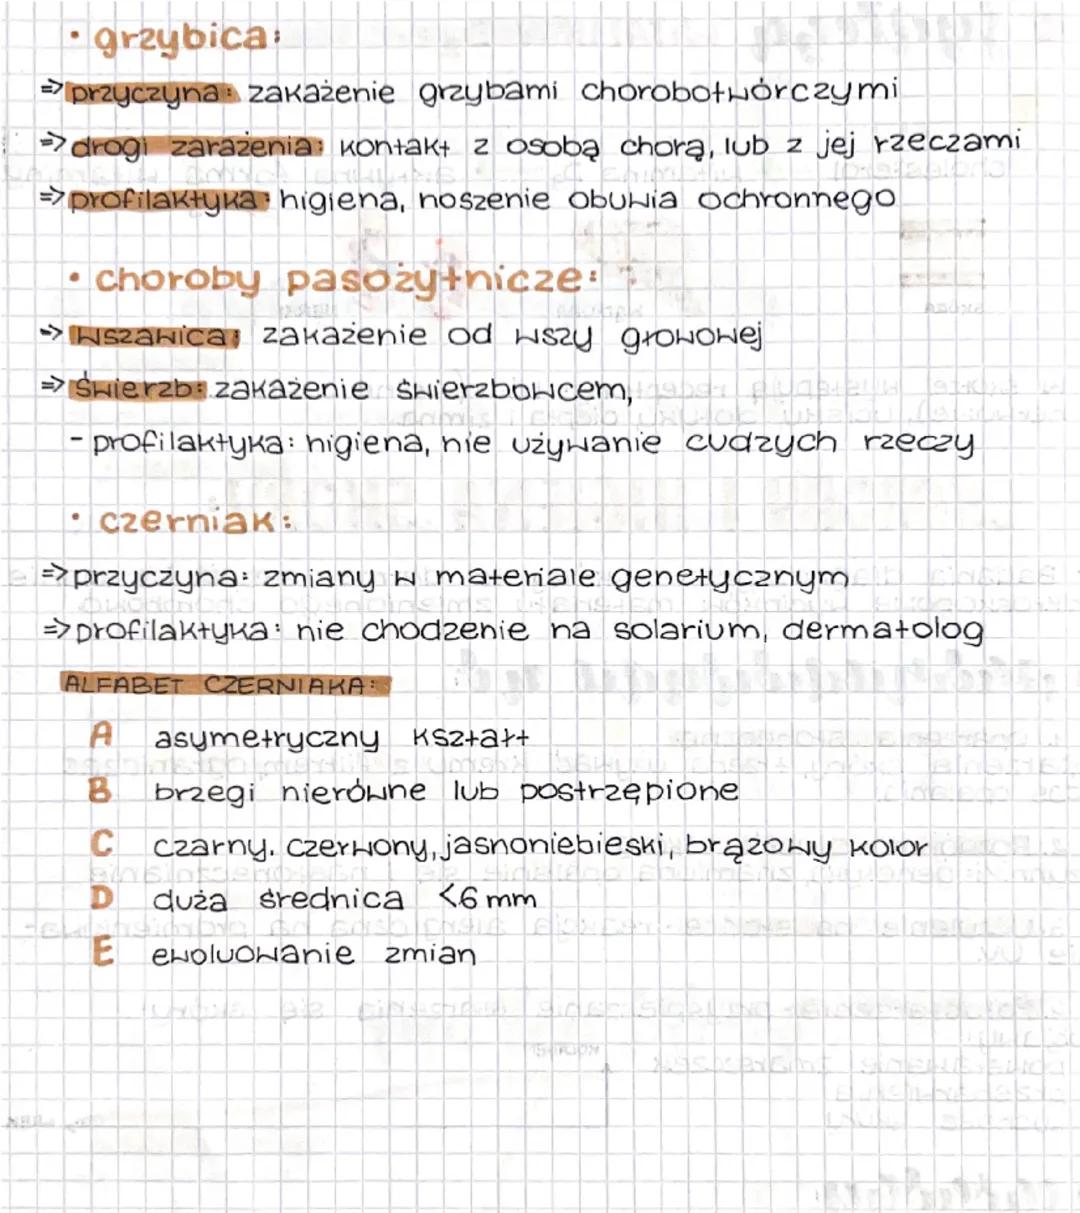 • grzybica:
=> przyczyna: zakażenie grzybami chorobotwórczymi
=> drogi zarażenia: kontakt z osobą chorą, lub z jej rzeczami
=> profilaktyka: higiena, noszenie obuwia ochronnego
• choroby pasożytnicze:
=> wszawica: zakażenie od wszy głowowej
=> świerzb: zakażenie świerzbowcem,
- profilaktyka: higiena, nie używanie cudzych rzeczy
• czerniak:
=> przyczyna: zmiany w materiale genetycznym
=> profilaktyka: nie chodzenie na solarium, dermatolog
ALFABET CZERNIAKA:
A asymetryczny kształt
B brzegi nierówne lub postrzępione
C czarny, czerwony, jasnoniebieski, brązowy kolor
D duża średnica <6 mm
E ewoluowanie zmian